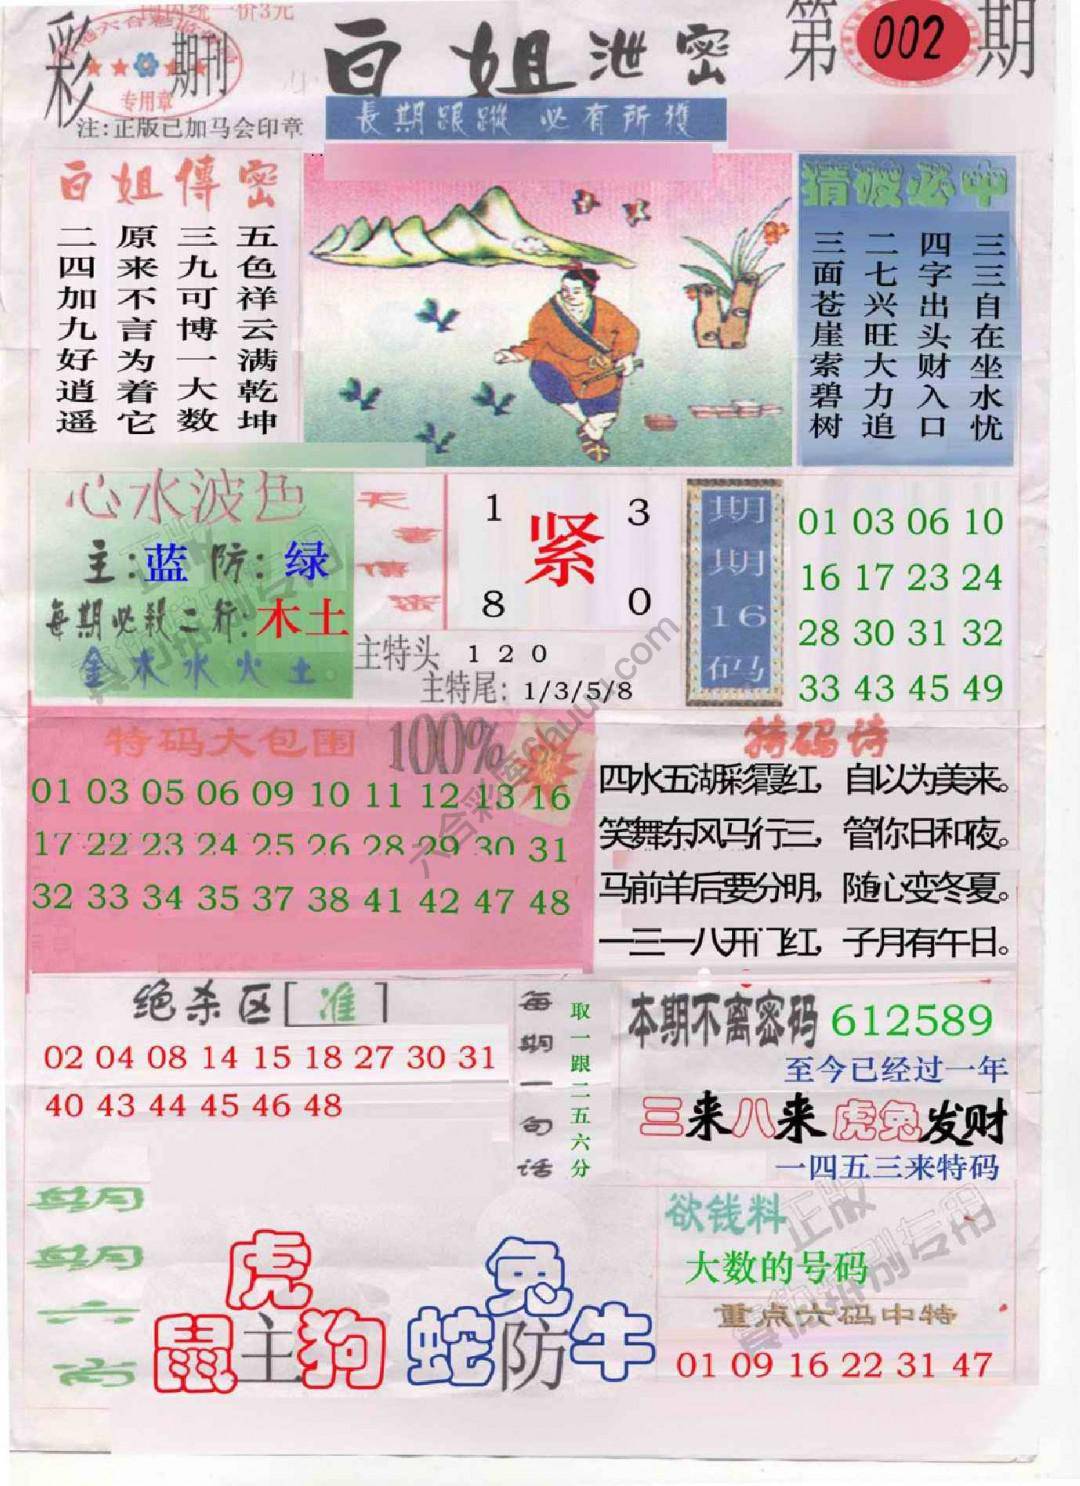 国内统一价3元
彩
期刊
专用章
注:正版已加马会印章
白姐泄密
第002期
長期跟蹤 必有所獲
白姐傳密
五色祥云满乾坤
三九可博一大数
原来不言为着它
二四加九好逍遥
猜破必中
三三自在坐水忧
四字出头财入口
二七兴旺大力追
三面苍崖索碧树
心水波色
主:蓝 防:绿
每期必殺二行:木土
金木水火土
天書信密
1 3
紧
8 0
主特头 1 2 0
主特尾: 1/3/5/8
期期16码
01 03 06 10
16 17 23 24
28 30 31 32
33 43 45 49
特码大包围 100%
01 03 05 06 09 10 11 12 13 16
17 22 23 24 25 26 28 29 30 31
32 33 34 35 37 38 41 42 47 48
特码诗
四水五湖彩霞红,自以为美来。
笑舞东风马行三,管你日和夜。
马前羊后要分明,随心变冬夏。
一三一八开门红,子月有午日。
绝杀区[准]
02 04 08 14 15 18 27 30 31
40 43 44 45 46 48
每期一句话
取一跟二五六分
本期不离密码 612589
至今已经过一年
三来八来 虎兔发财
一四五三来特码
每期六肖
虎
鼠主狗
兔
蛇防牛
欲钱料
大数的号码
重点六码中特
01 09 16 22 31 47
六合彩库cauu.com